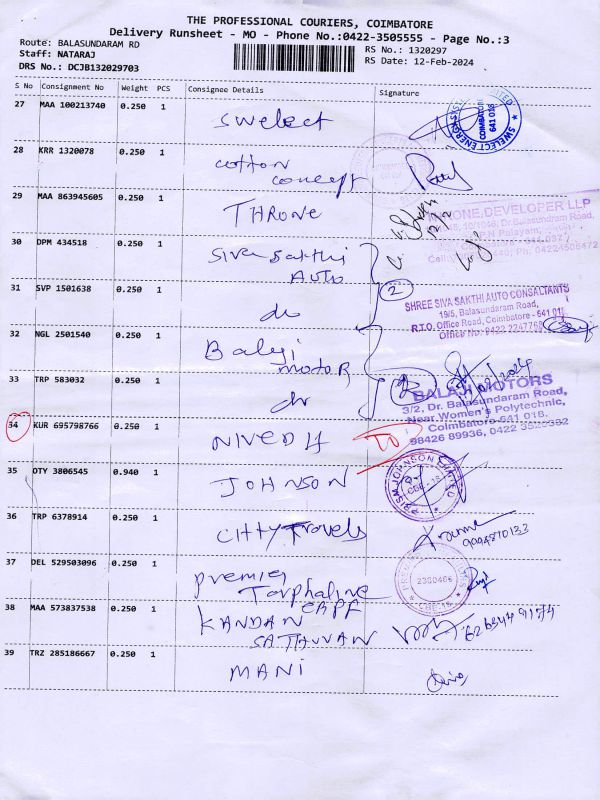 THE PROFESSIONAL COURIERS, COIMBATORE
Delivery Runsheet - MO - Phone No.:0422-3505555 - Page No.:3
Route: BALASUNDARAM RD
RS No.: 1320297
Staff: NATARAJ
RS Date: 12-Feb-2024
DRS No.: DCJB132029703
S No Consignment No Weight PCS Consignee Details Signature
27 MAA 100213740 0.250 1 Swelect
SWELECT ENERGY
COIMBATORE
641 018
28 KRR 1320078 0.250 1 cotton
concept
29 MAA 863945605 0.250 1 THRONE
DEVELOPER LLP
Dr. Balasundaram Road,
30 DPM 434518 0.250 1 Siva Sakthi
AUTO
2
31 SVP 1501638 0.250 1 do
SHREE SIVA SAKTHI AUTO CONSULTANTS
19/5, Balasundaram Road,
R.T.O. Office Road, Coimbatore - 641 018
32 NGL 2501540 0.250 1 Balaji
motor
33 TRP 583032 0.250 1 do
BALAJI MOTORS
3/2, Dr. Balasundaram Road,
Near Women's Polytechnic,
Coimbatore-641 018.
34 KUR 695798766 0.250 1 NIVEDH
TO
35 OTY 3806545 0.940 1 JOHNSON
36 TRP 6378914 0.250 1 City Travels
9994870133
37 DEL 529503096 0.250 1 premier
Tarphaline
38 MAA 573837538 0.250 1 KANDAN
CAPF
39 TRZ 285186667 0.250 1 MANI